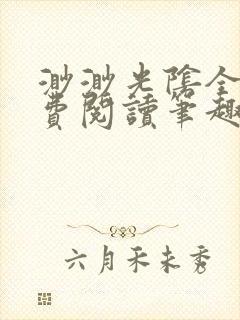 渺渺光陰全
費閱讀筆趣
六月禾未秀